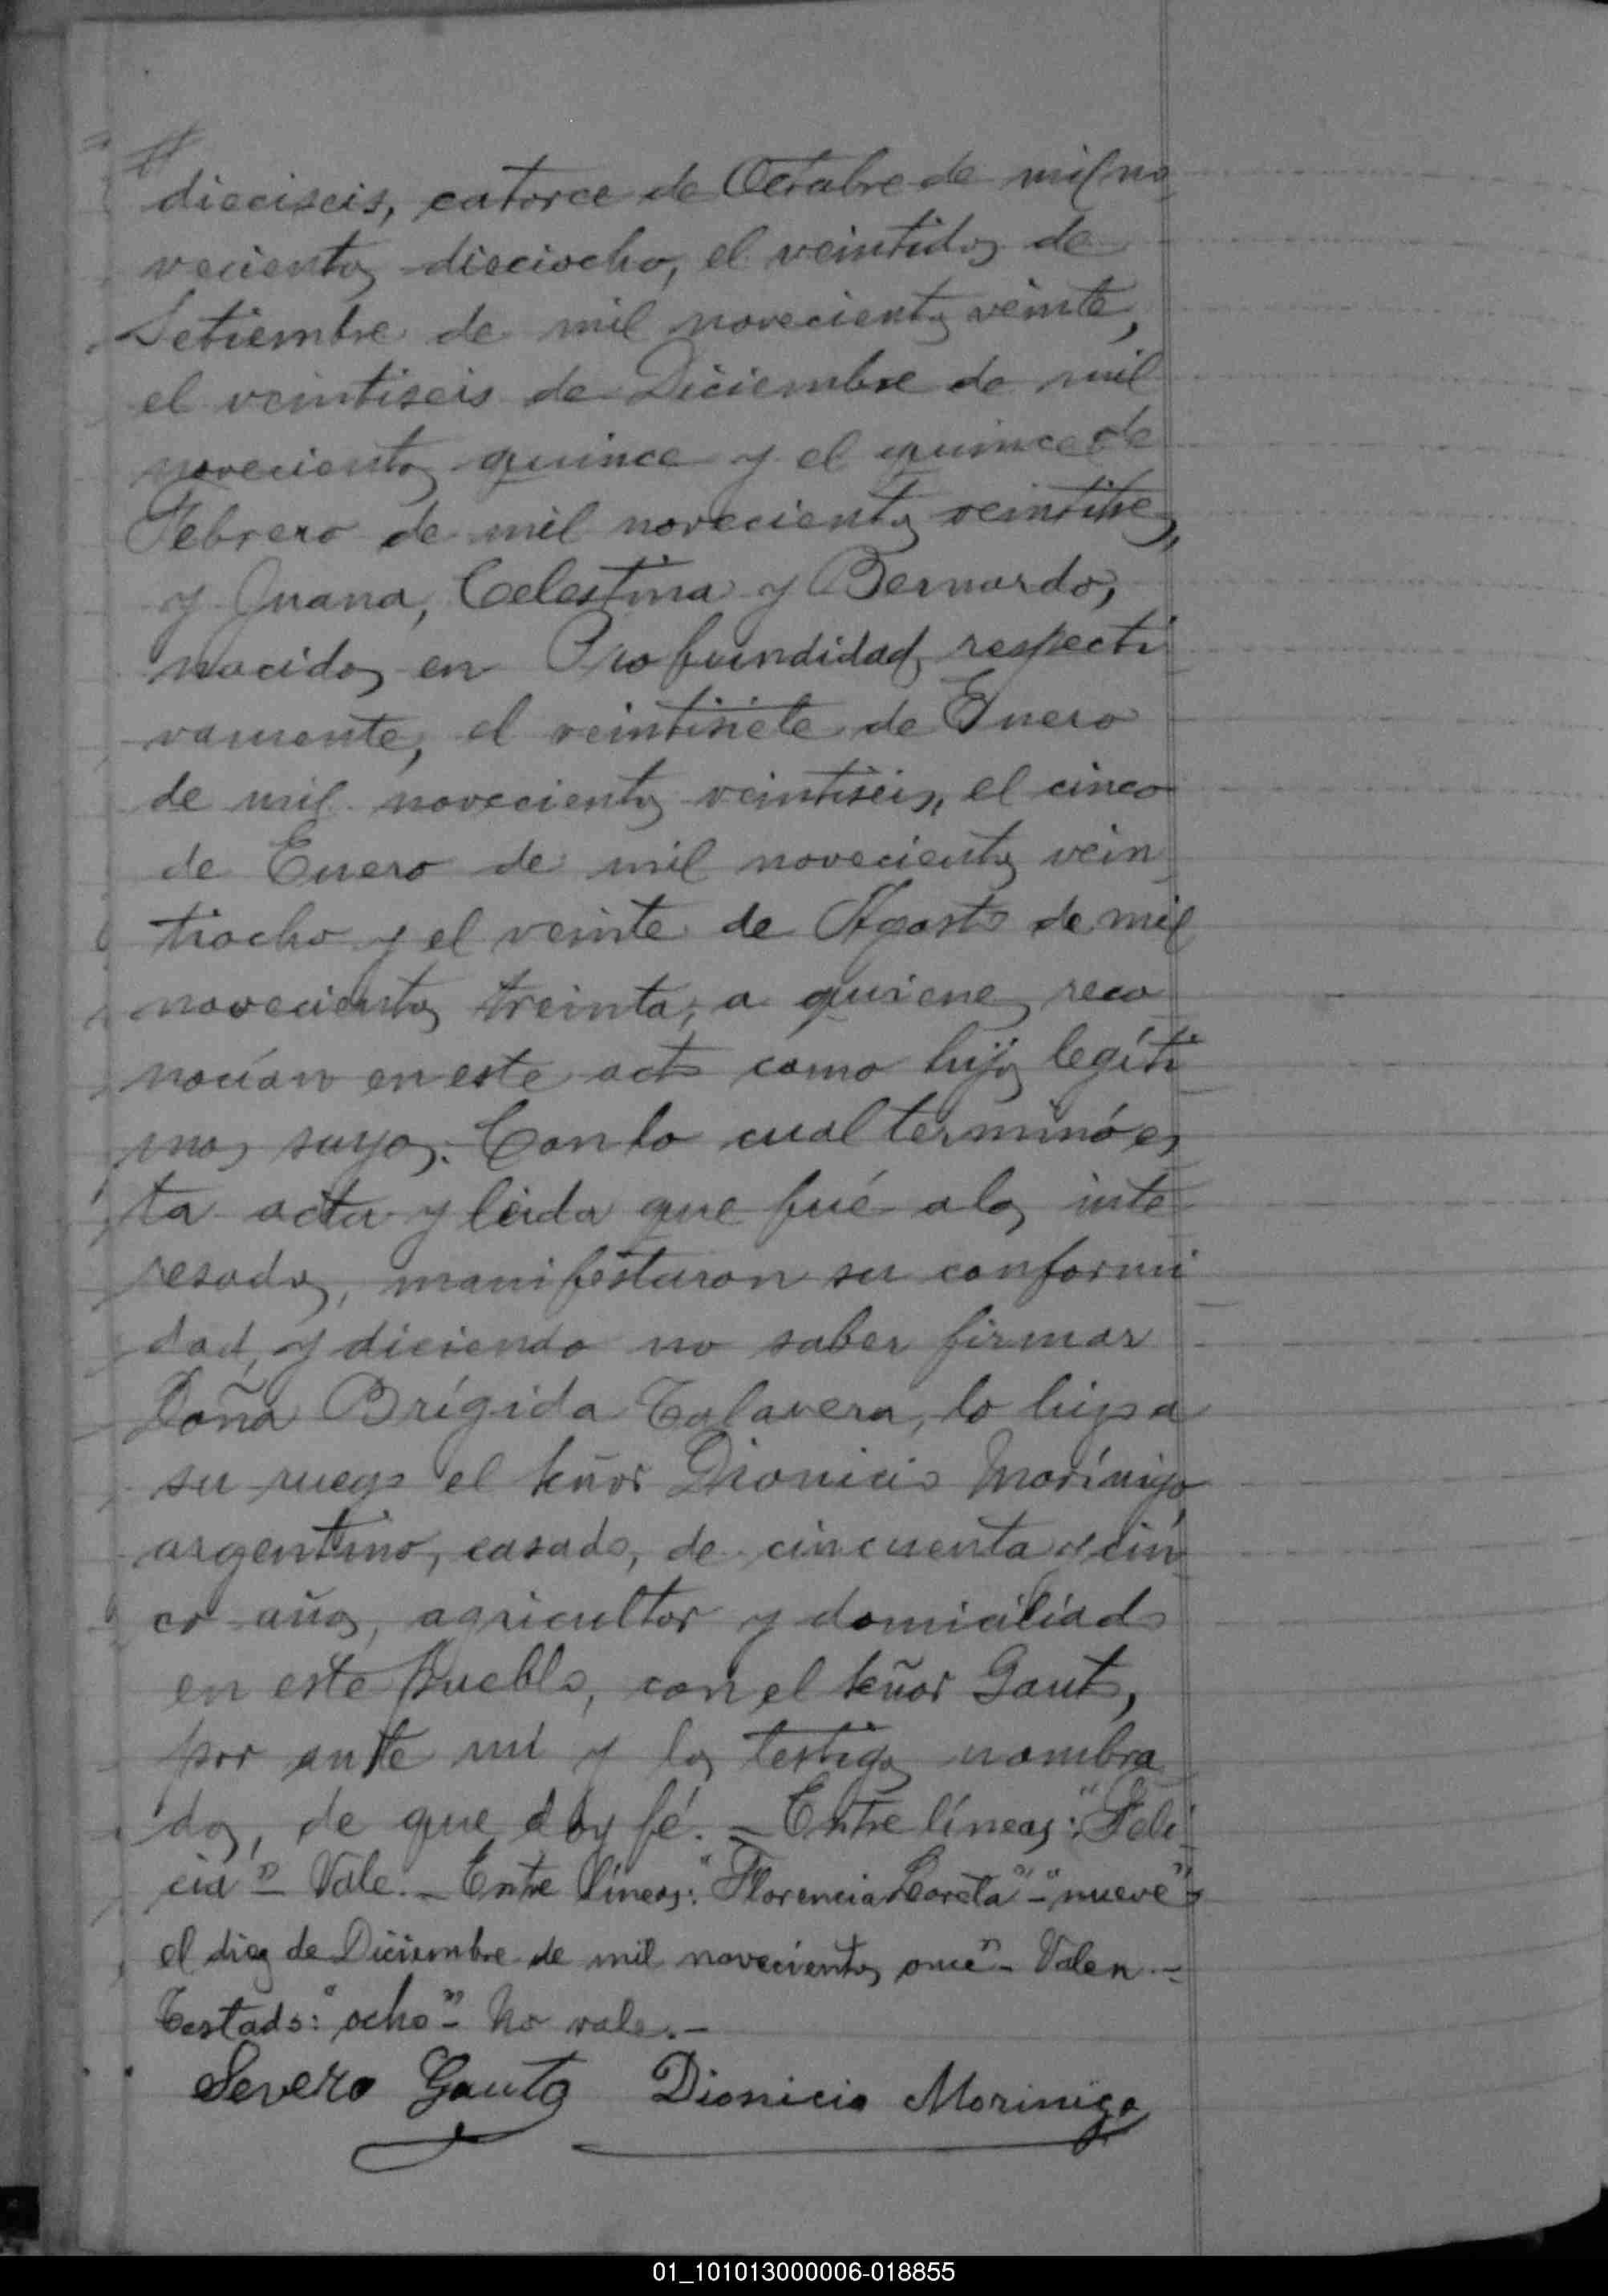 dieciseis, catorce de Octubre de mil no
vecientos dieciocho, el veintidos de
Setiembre de mil novecientos veinte,
el veintiseis de Diciembre de mil
novecientos quince y el quince de
Febrero de mil novecientos veintitres,
y Juana, Celestina y Bernardo,
nacidos en Profundidad, respecti
vamente, el veintisiete de Enero
de mil novecientos veintiseis, el cinco
de Enero de mil novecientos vein
tiocho y el veinte de Agosto de mil
novecientos treinta, a quienes reco
nocían en este acto como hijos legíti
mos suyos. Con lo cual terminó es
ta acta y leida que fué a los inte
resados, manifestaron su conformi
dad, y diciendo no saber firmar
Doña Brígida Talavera, lo hizo a
su ruego el señor Dionicio Morínigo,
argentino, casado, de cincuenta y cin
co años, agricultor y domiciliado
en este Pueblo, con el señor Gauto,
por ante mi y los testigos nombra
dos, de que doy fé. = Entre líneas: "Feli
cia" - Vale. - Entre líneas: "Florencia Loreta" - "nueve" -
el diez de Diciembre de mil novecientos once" - Valen. -
Testado: "ocho" - No vale. -
Severo Gauto Dionicio Morinigo
01_101013000006-018855